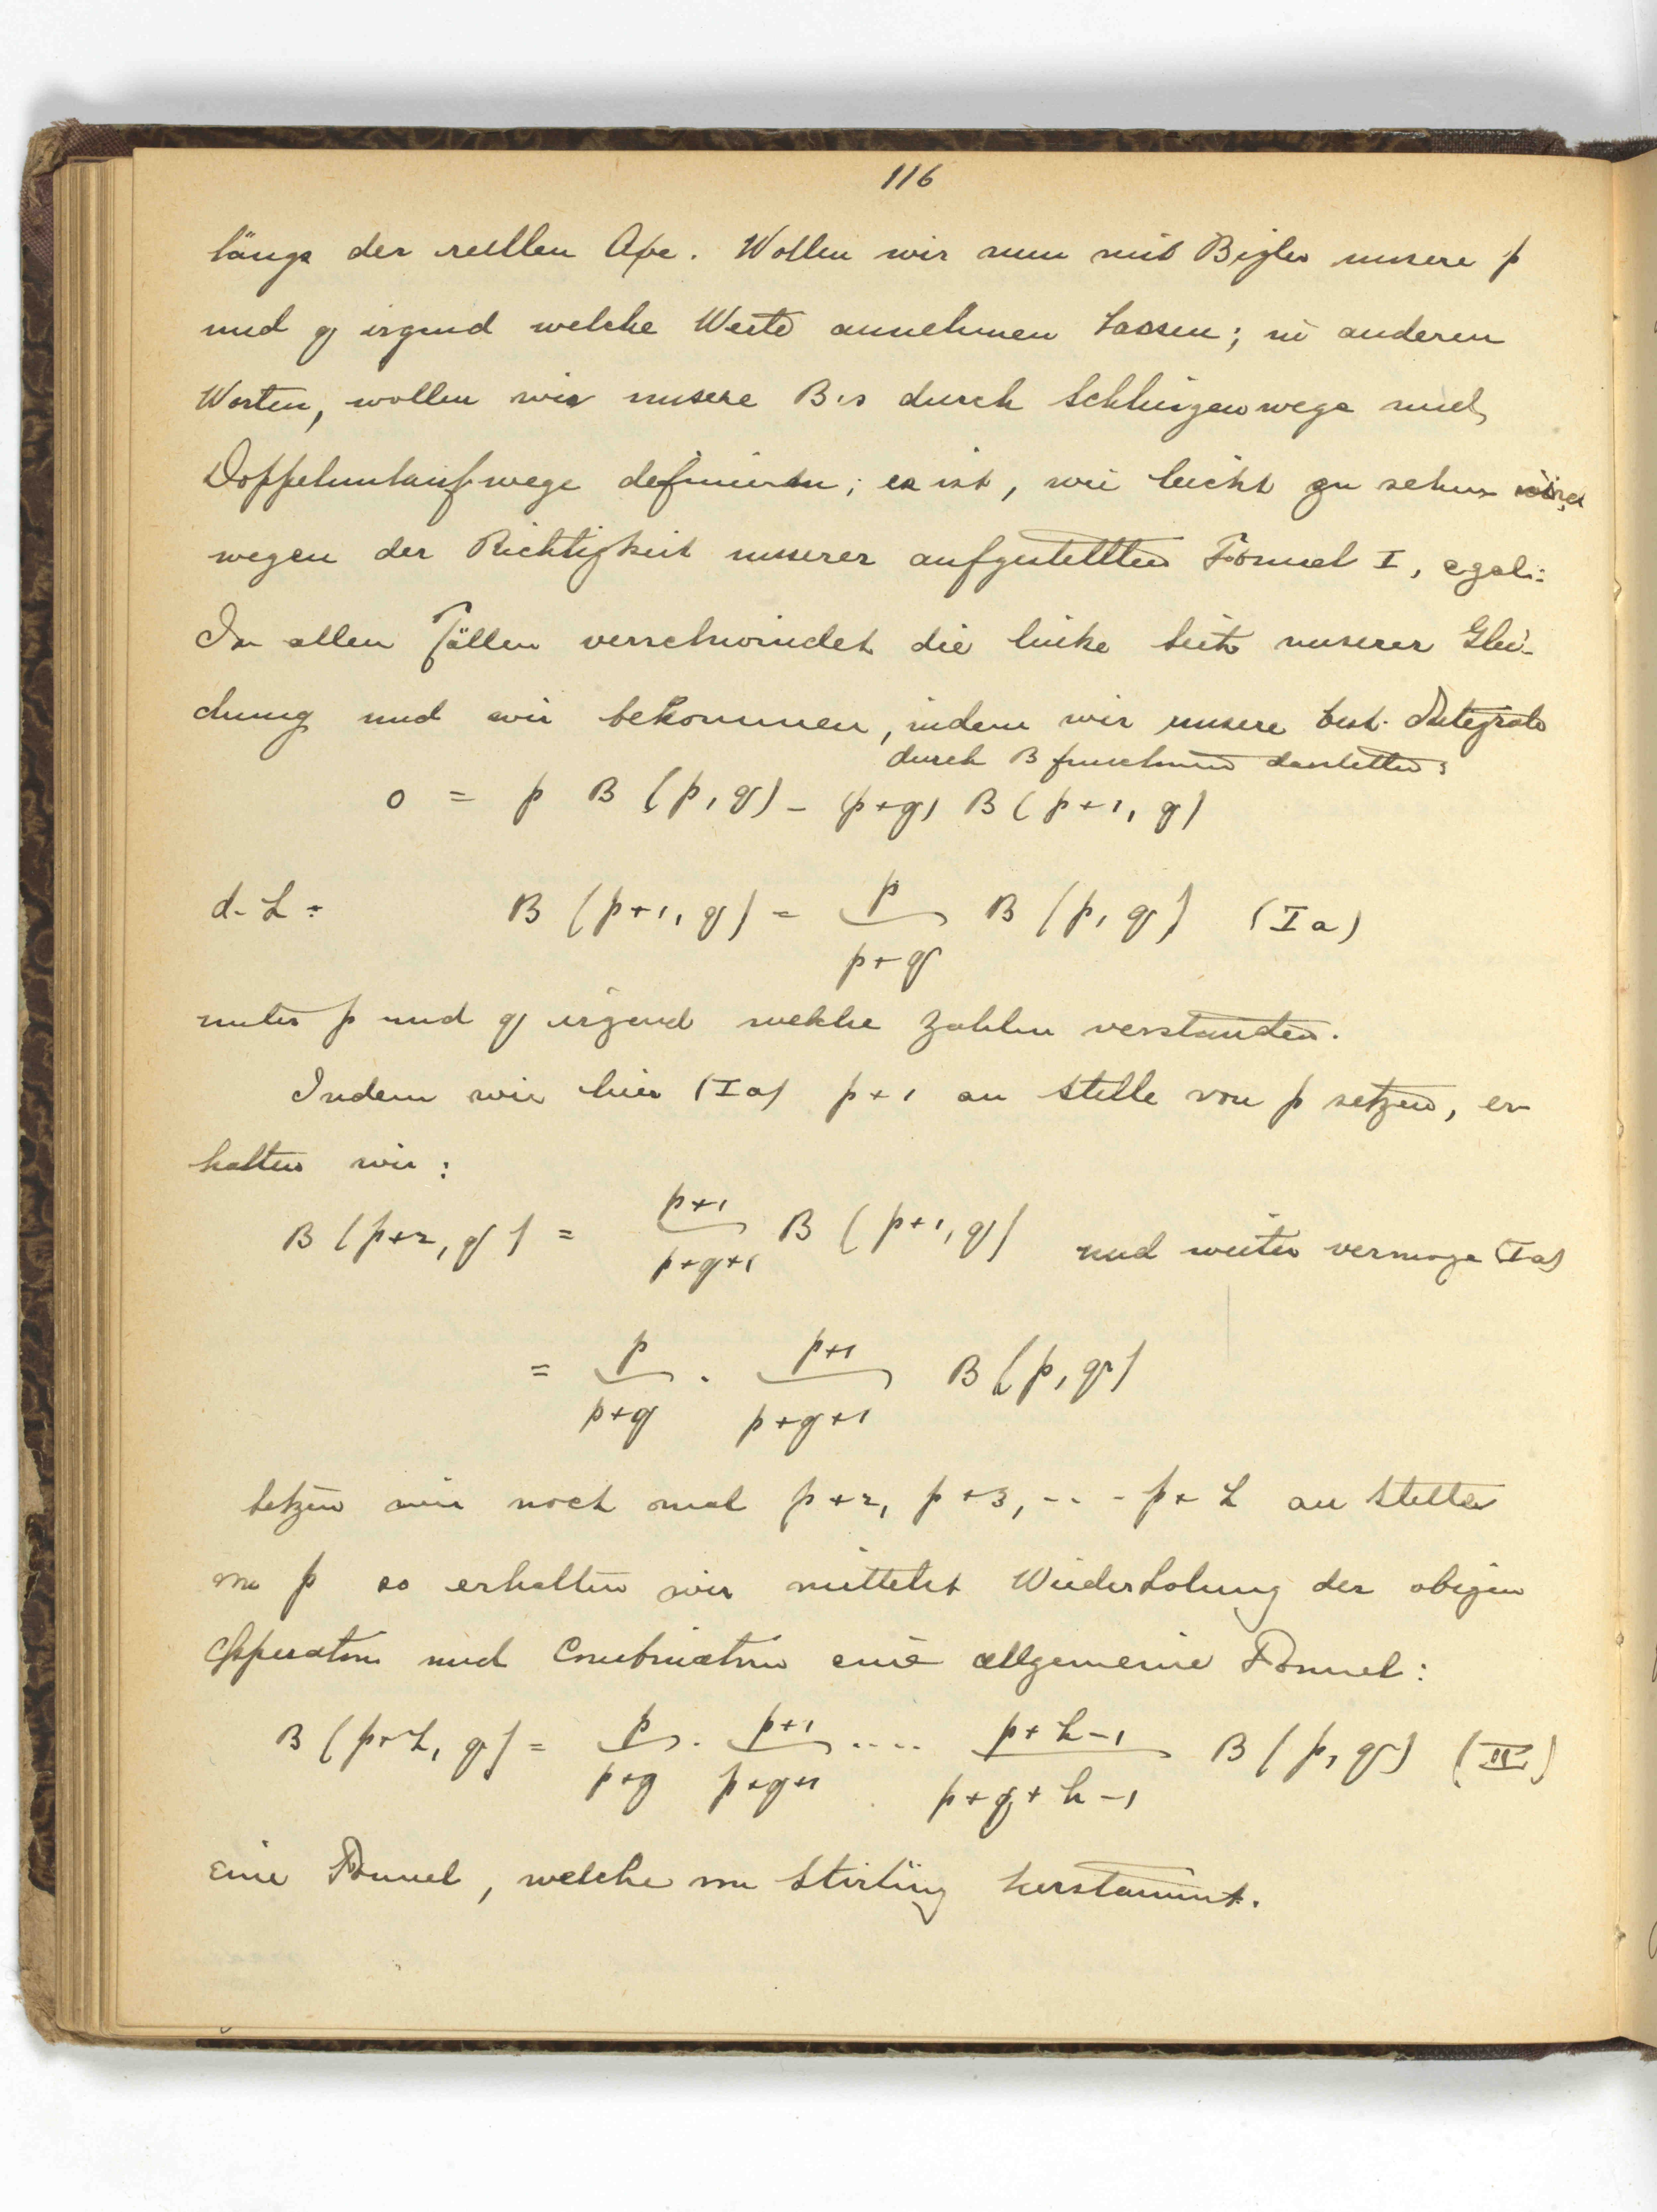 116
längs der reellen Axe. Wollen wir nun mit Bigler unsere p
und q irgend welche Werte annehmen lassen; in anderen
Worten, wollen wir unsere B's durch Schlingenwege und
Doppelumlaufwege definieren; es ist, wie leicht zu sehen
wegen der Richtigkeit unserer aufgestellten Formel I, egal:
In allen Fällen verschwindet die linke Seite unserer Glei-
chung und wir bekommen, indem wir unsere best. Integrale
durch B functionen darstellen:
0 = p B (p, q) - (p+q) B (p+1, q)
d. h: B (p+1, q) = p/(p+q) B (p, q) (I a)
unter p und q irgend welche Zahlen verstanden.
Indem wir hier (I a) p+1 an Stelle von p setzen, er-
halten wir:
B (p+2, q) = (p+1)/(p+q+1) B (p+1, q) und weiter vermöge (I a)
= p/(p+q) . (p+1)/(p+q+1) B (p, q)
Setzen wir noch mal p+2, p+3, --- p+h an Stelle
von p so erhalten wir mittelst Wiederholung der obigen
Operation und Combination eine allgemeine Formel:
B (p+h, q) = p/(p+q) . (p+1)/(p+q+1) .... (p+h-1)/(p+q+h-1) B (p, q) (II)
eine Formel, welche von Stirling herstammt.